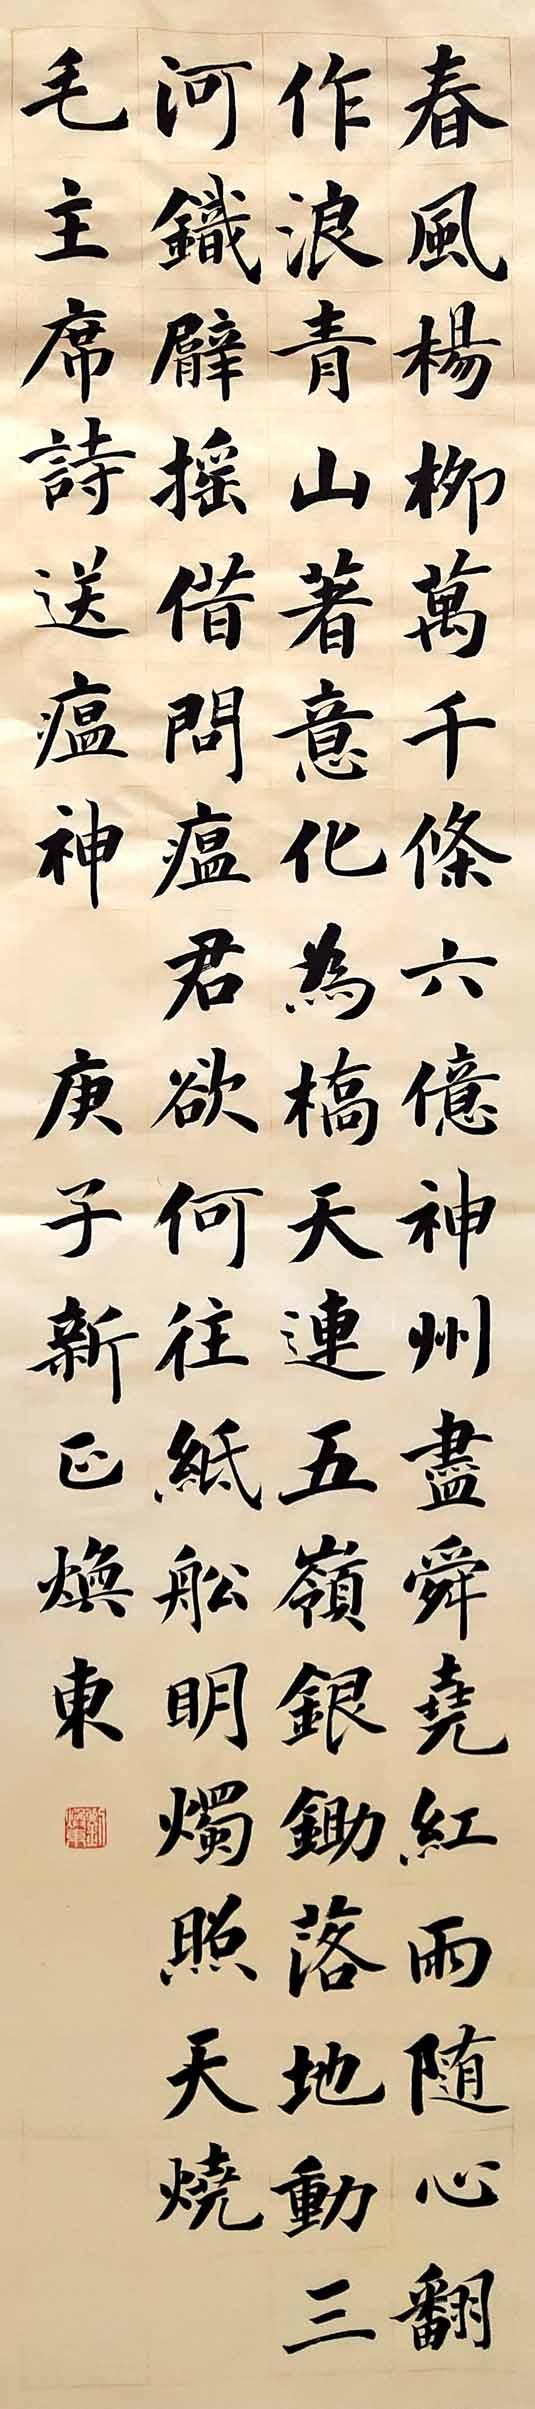 春風楊柳萬千條六億神州盡舜堯紅雨随心翻
作浪青山著意化為橋天連五嶺銀鋤落地動三
河鐵臂摇借問瘟君欲何往紙船明燭照天燒
毛主席詩送瘟神 庚子新正煥東